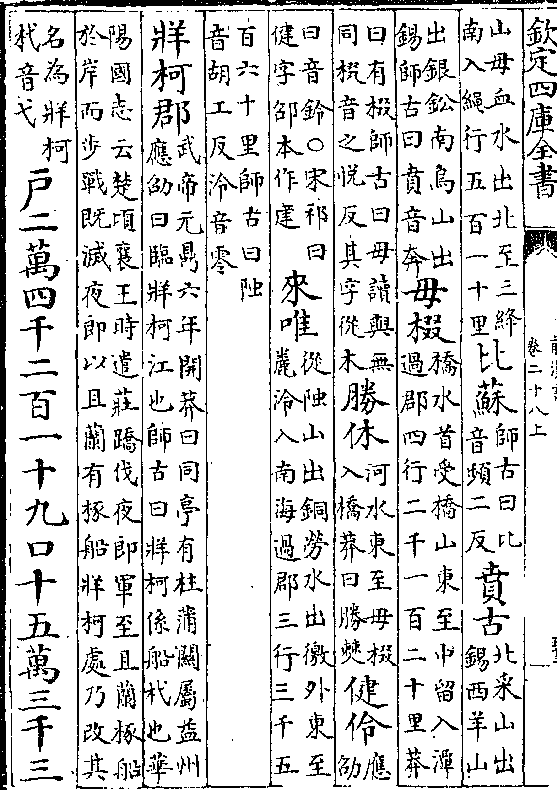 欽定四庫全書
卷二十八上
山毋血水出北至三絳南入繩行五百一十里比蘇師古曰比音頻二反賁古北采山出錫西羊山
出銀鈆南烏山出錫師古曰賁音奔毋棳橋水首受橋山東至中留入潭過郡四行二千一百二十里莽
曰有棳師古曰毋讀與無同棳音之悅反其字從木勝休河水東至毋棳入橋莽曰勝僰健伶應劭
曰音鈴○宋祁曰健字邵本作建來唯從陁山出銅勞水出徼外東至麊泠入南海過郡三行三千五
百六十里師古曰陁音胡工反泠音零
牂柯郡武帝元鼎六年開莽曰同亭有柱蒲關屬益州應劭曰臨牂柯江也師古曰牂柯係船杙也華
陽國志云楚頃襄王時遣莊蹻伐夜郎軍至且蘭椓船於岸而步戰既滅夜郎以且蘭有椓船牂柯處乃改其
名為牂柯杙音弋戶二萬四千二百一十九口十五萬三千三